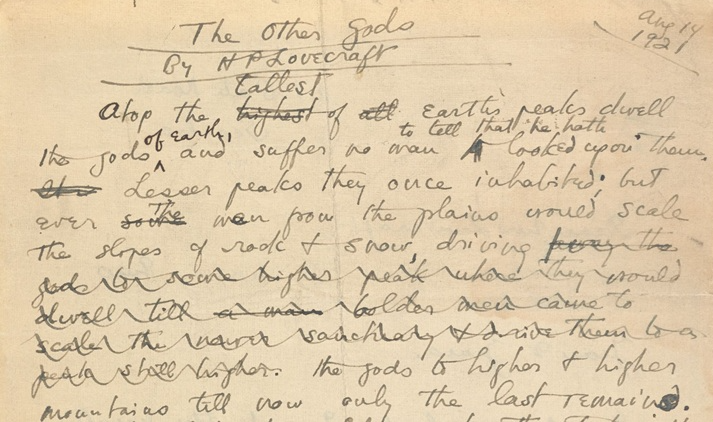 Aug 14
1921
The Other Gods
By H P Lovecraft
tallest
Atop the highest of all earth's peaks dwell
of earth, to tell that he hath
the gods and suffer no man looked upon them.
Lesser peaks they once inhabited; but
the
ever some men from the plains would scale
the slopes of rock & snow, driving
gods to some higher peak where they would
dwell till a man bolder men came to
scale the newer sanctuary & drive them to a
peak still higher. the gods to higher & higher
mountains till now only the last remains.